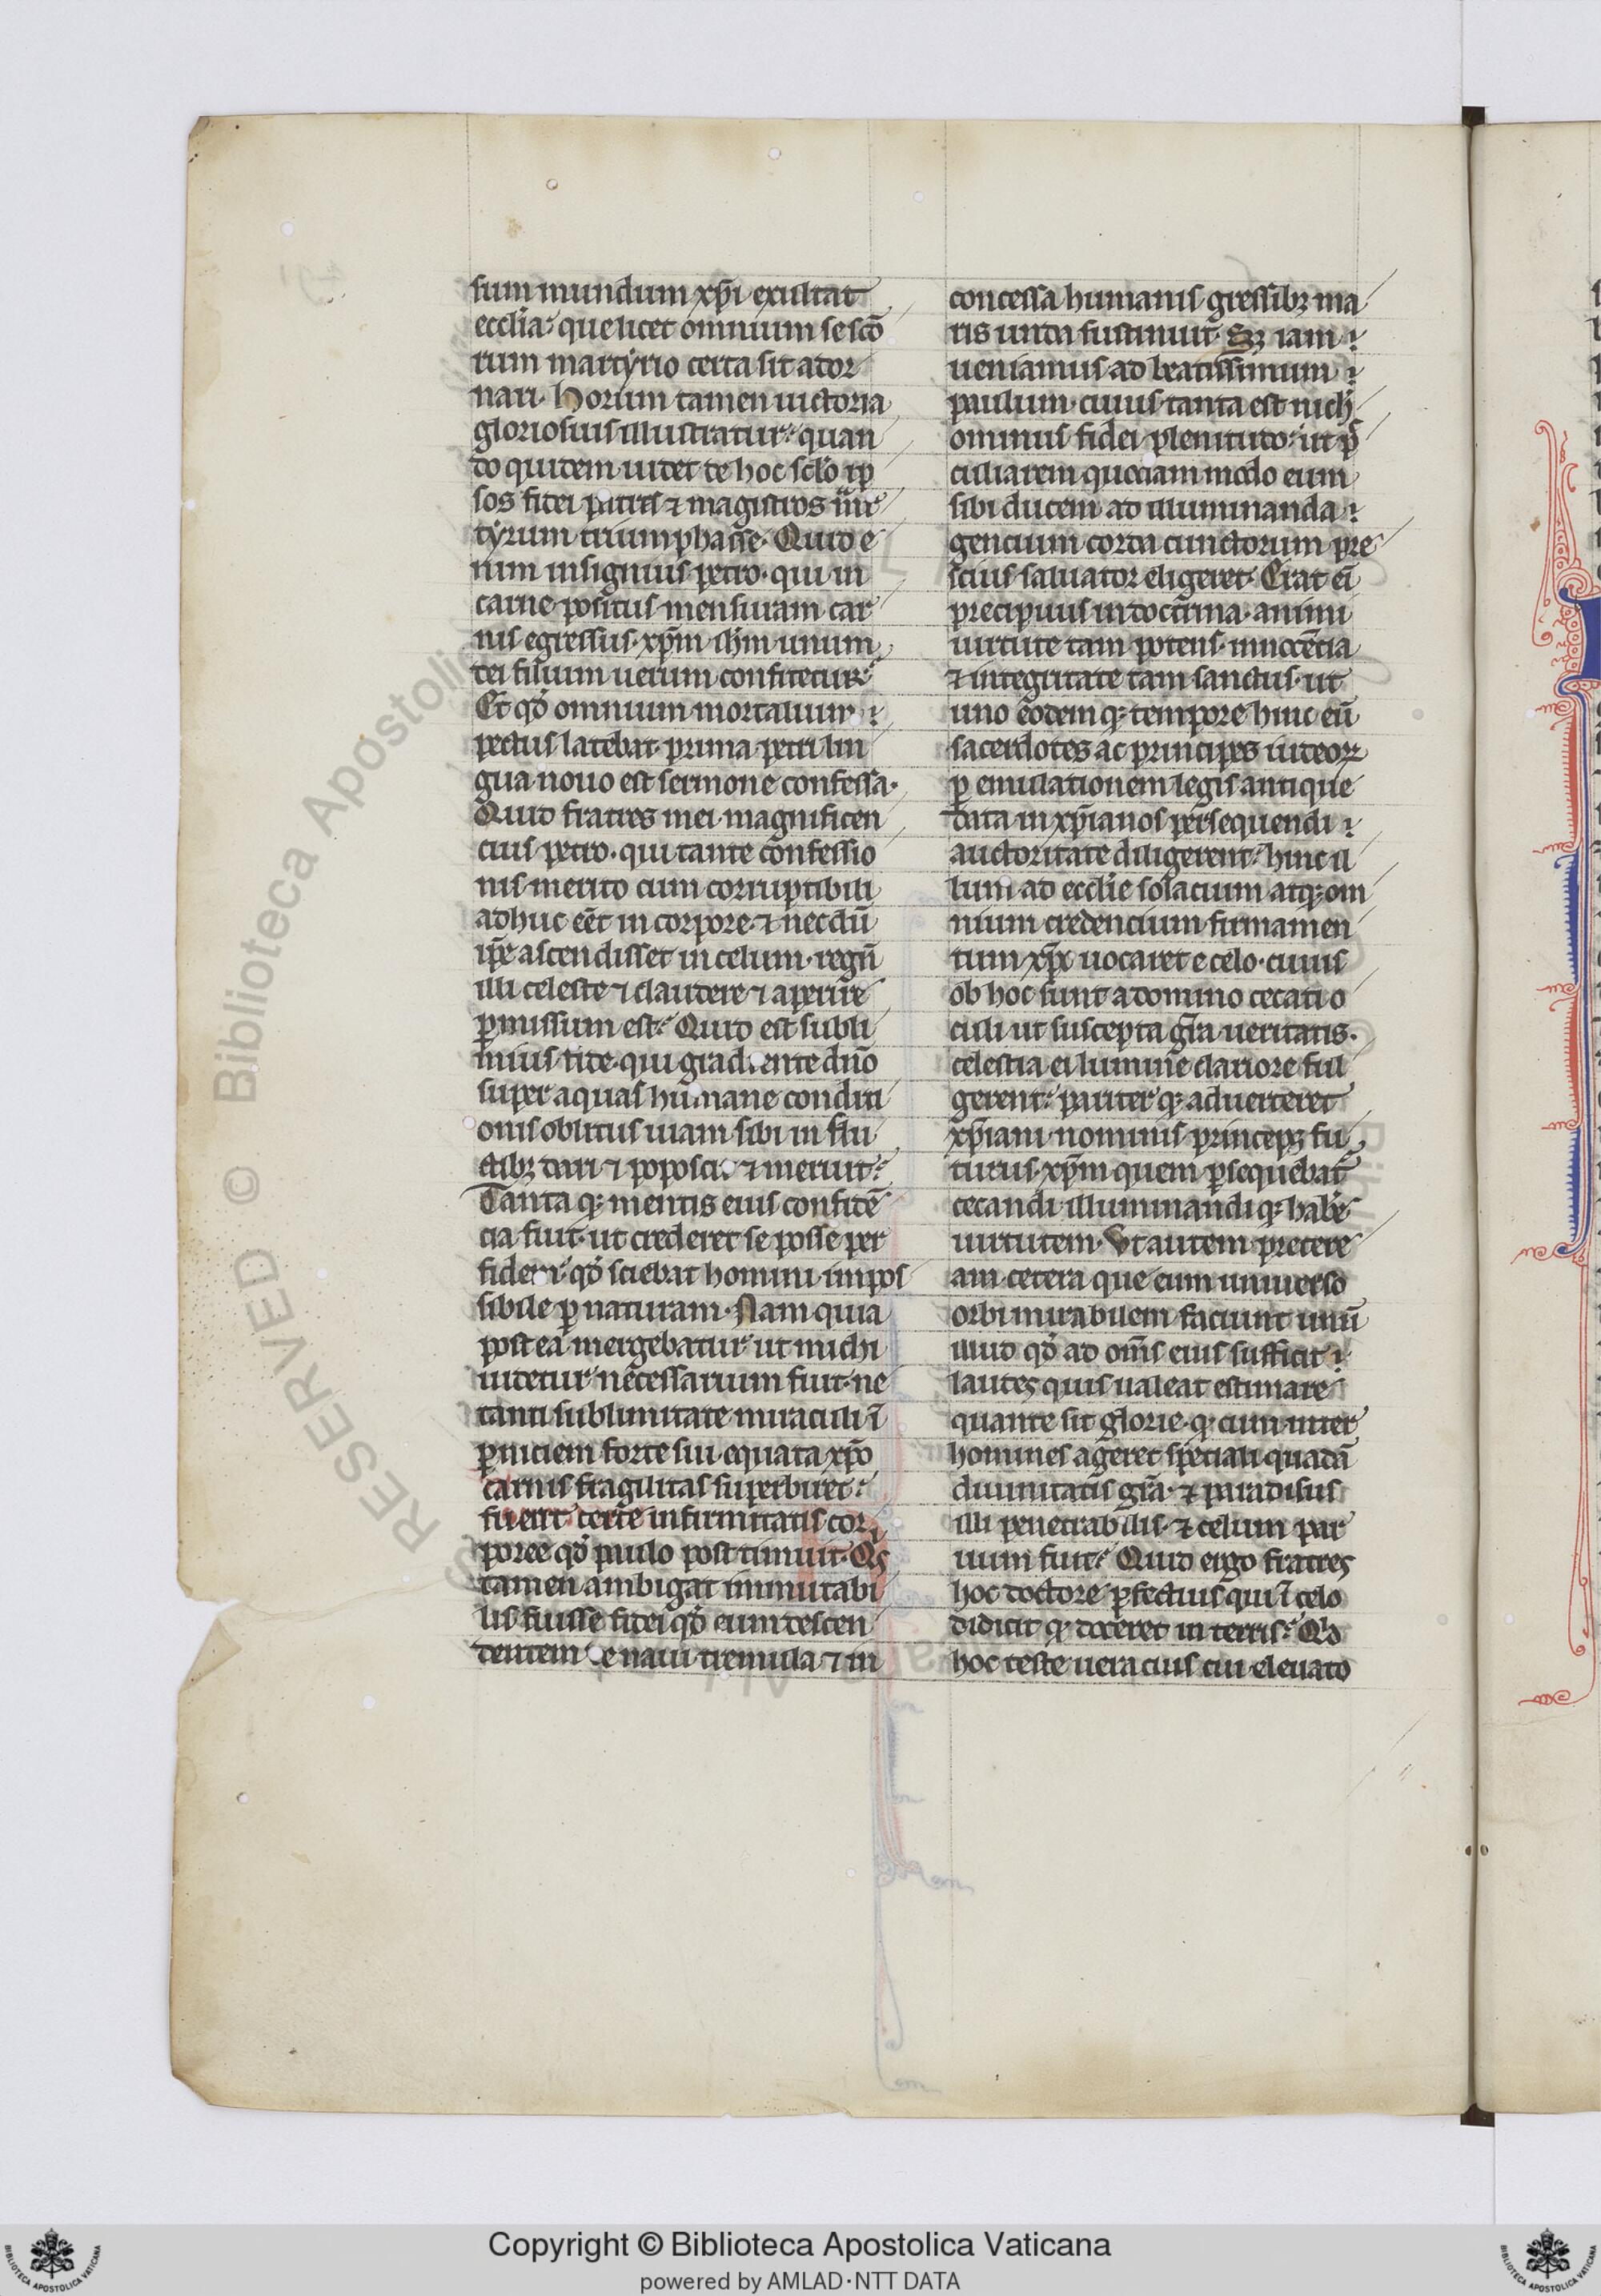 sum mundum xp̅i exultat
ecclia: que licet omnium se scō
rum martyrio certa sit ador
nari. Horum tamen uictoria
gloriosius illustratur: quan
do quidem uidet de hoc sclo ip
sos fidei patres ⁊ magistros mar
tyrum triumphasse. Quid e
nim insignius petro. qui in
carne positus mensuram car
nis egressus. xp̅m ihm unum
dei filium uerum confitetur:
Et qd̓ omnium mortalium
pectus latebat prima petri lin
gua nouo est sermone confessa.
Quid fratres mei magnificen
cius petro. qui tante confessio
nis merito cum corruptibili
adhuc eēt in corpore ⁊ necdū
ip̅e ascendisset in celum. regn̄
illi celeste ⁊ claudere ⁊ aperire
ꝑmissum est: Quid est subli
mius fide. qui gradiente dn̄o
super aquas humane conditi
onis oblitus uiam sibi in flu
ctibꝫ dari ⁊ poposcit ⁊ meruit:
Tanta qꝫ mentis eius confidē
cia fuit. ut crederet se posse per
fidem qd̓ sciebat homini impos
sibile ꝑ naturam. Nam quia
postea mergebatur ut michi
uidetur necessarium fuit. ne
tanti sublimitate miraculi ī
ꝑniciem forte sui equata xp̅o
carnis fragilitas superbiret:
fuerit certe infirmitatis cor
poree qd̓ paulo post timuit. Qⁱs
tamen ambigat immutabi
lis fuisse fidei qd̓ eum descen
dentem e naui tremula ⁊ in
concessa humanis gressibꝫ ma
ris unda sustinuit. Sꝫ iam
ueniamus ad beatissimum
paulum. cuius tanta est nich̓
ominus fidei plenitudo: ut pe
culiarem quodam modo eum
sibi ducem ad illuminanda
gencium corda cunctorum pre
scius saluator eligeret. Erat ei̅
precipuus in doctrina. animi
uirtute tam potens. innocētia
⁊ integritate tam sanctus. ut
uno eodem qꝫ tempore hinc eū
sacerdotes ac principes iudeoꝝ
ꝑ emulationem legis antique
data in xp̅ianos persequendi
auctoritate diligerent: hinc il
lum ad ecclie solacium atqꝫ om
nium credencium firmamen
tum xp̅c uocaret e celo. cuius
ob hoc sunt a domino cecati o
culi ut suscepta gr̅a ueritatis.
celestia ei lumine clariore ful
gerent: pariter qꝫ aduerteret
xp̅iani nominis princeps fu
turus. xp̅m quem ꝑsequebat̅
cecandi illuminandi qꝫ habe̅
uirtutem. Vt autem pretere
am cetera que eum uniuerso
orbi mirabilem faciunt unū
illud qd̓ ad om̅s eius sufficit
laudes quis ualeat estimare
quante sit glorie. qꝫ cum inter
homines ageret speciali quadā
diuinitatis gr̅a. ⁊ paradisus
illi penetrabilis. ⁊ celum par
uum fuit: Quid ergo fratres
hoc doctore ꝑfectius qui ī celo
didicit qd̓ doceret in terris: Qⁱd
hoc teste ueracius cui eleuato
Copyright © Biblioteca Apostolica Vaticana
powered by AMLAD·NTT DATA